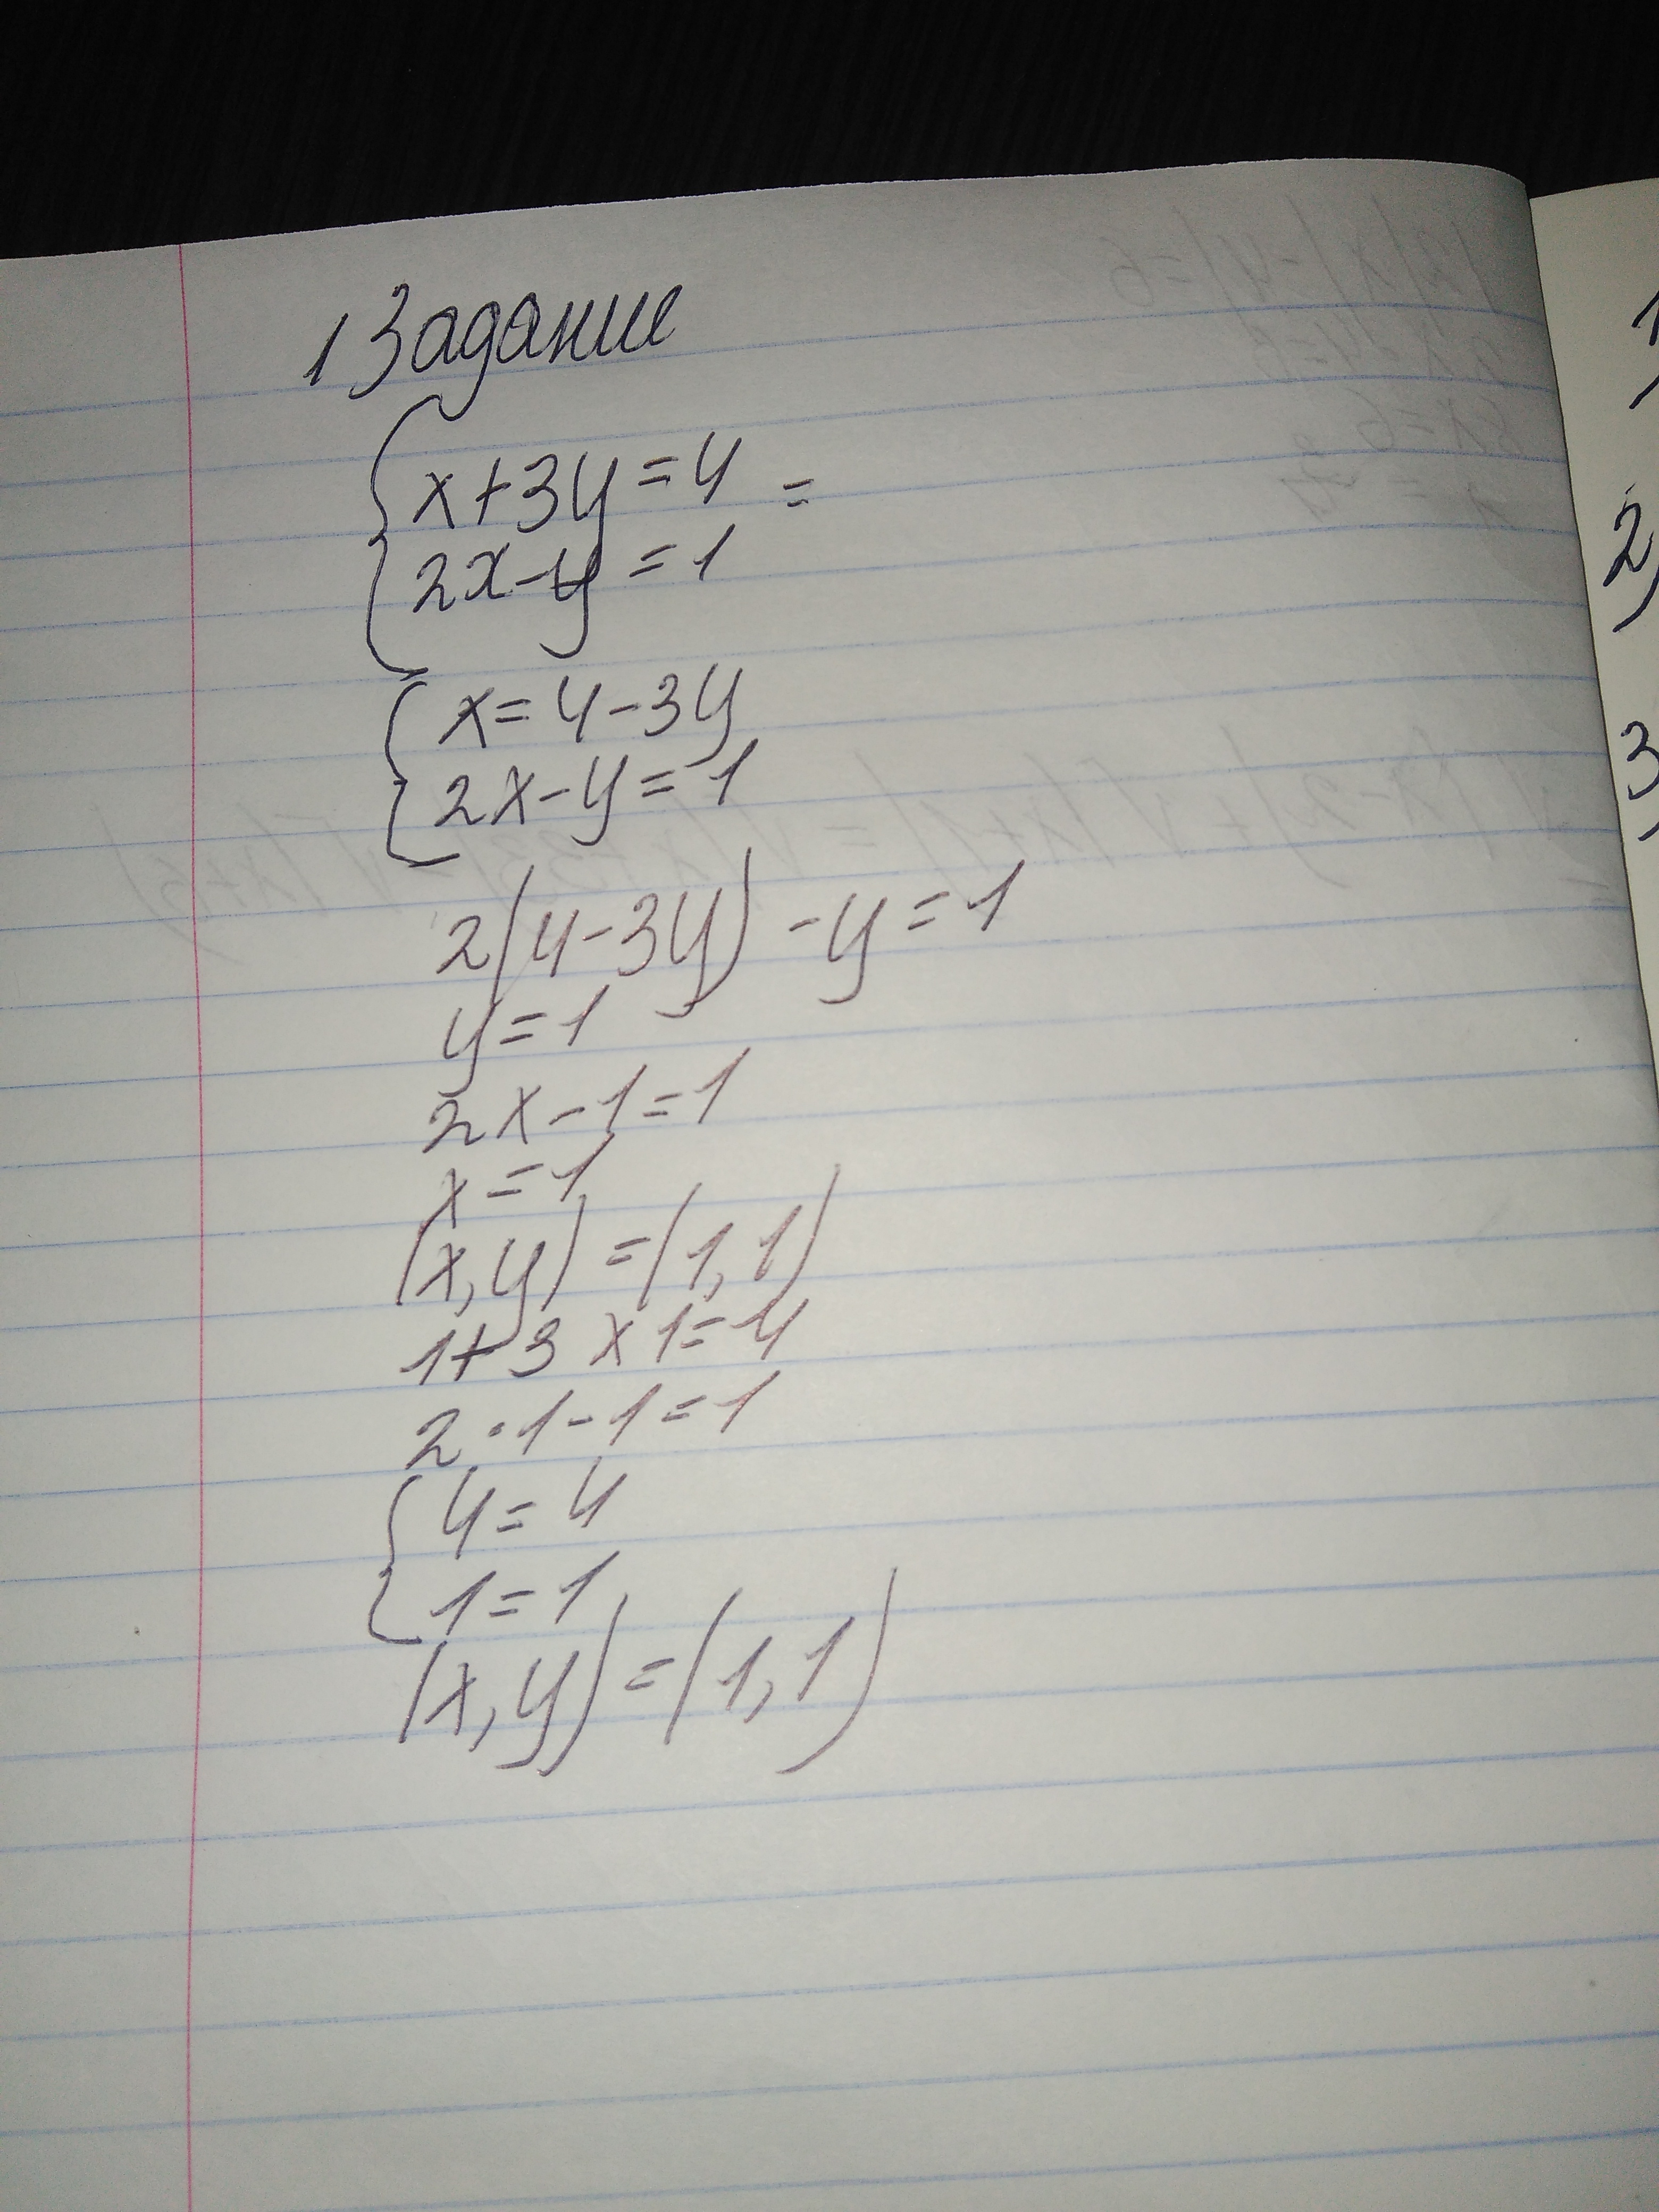 1 Задание
x+3y=4 =
2x-y=1
x=4-3y
2x-y=1
2(4-3y)-y=1
y=1
2x-1=1
x=1
(x,y)=(1,1)
1+3x1=4
2·1-1=1
4=4
1=1
(x,y)=(1,1)
1)
2)
3)